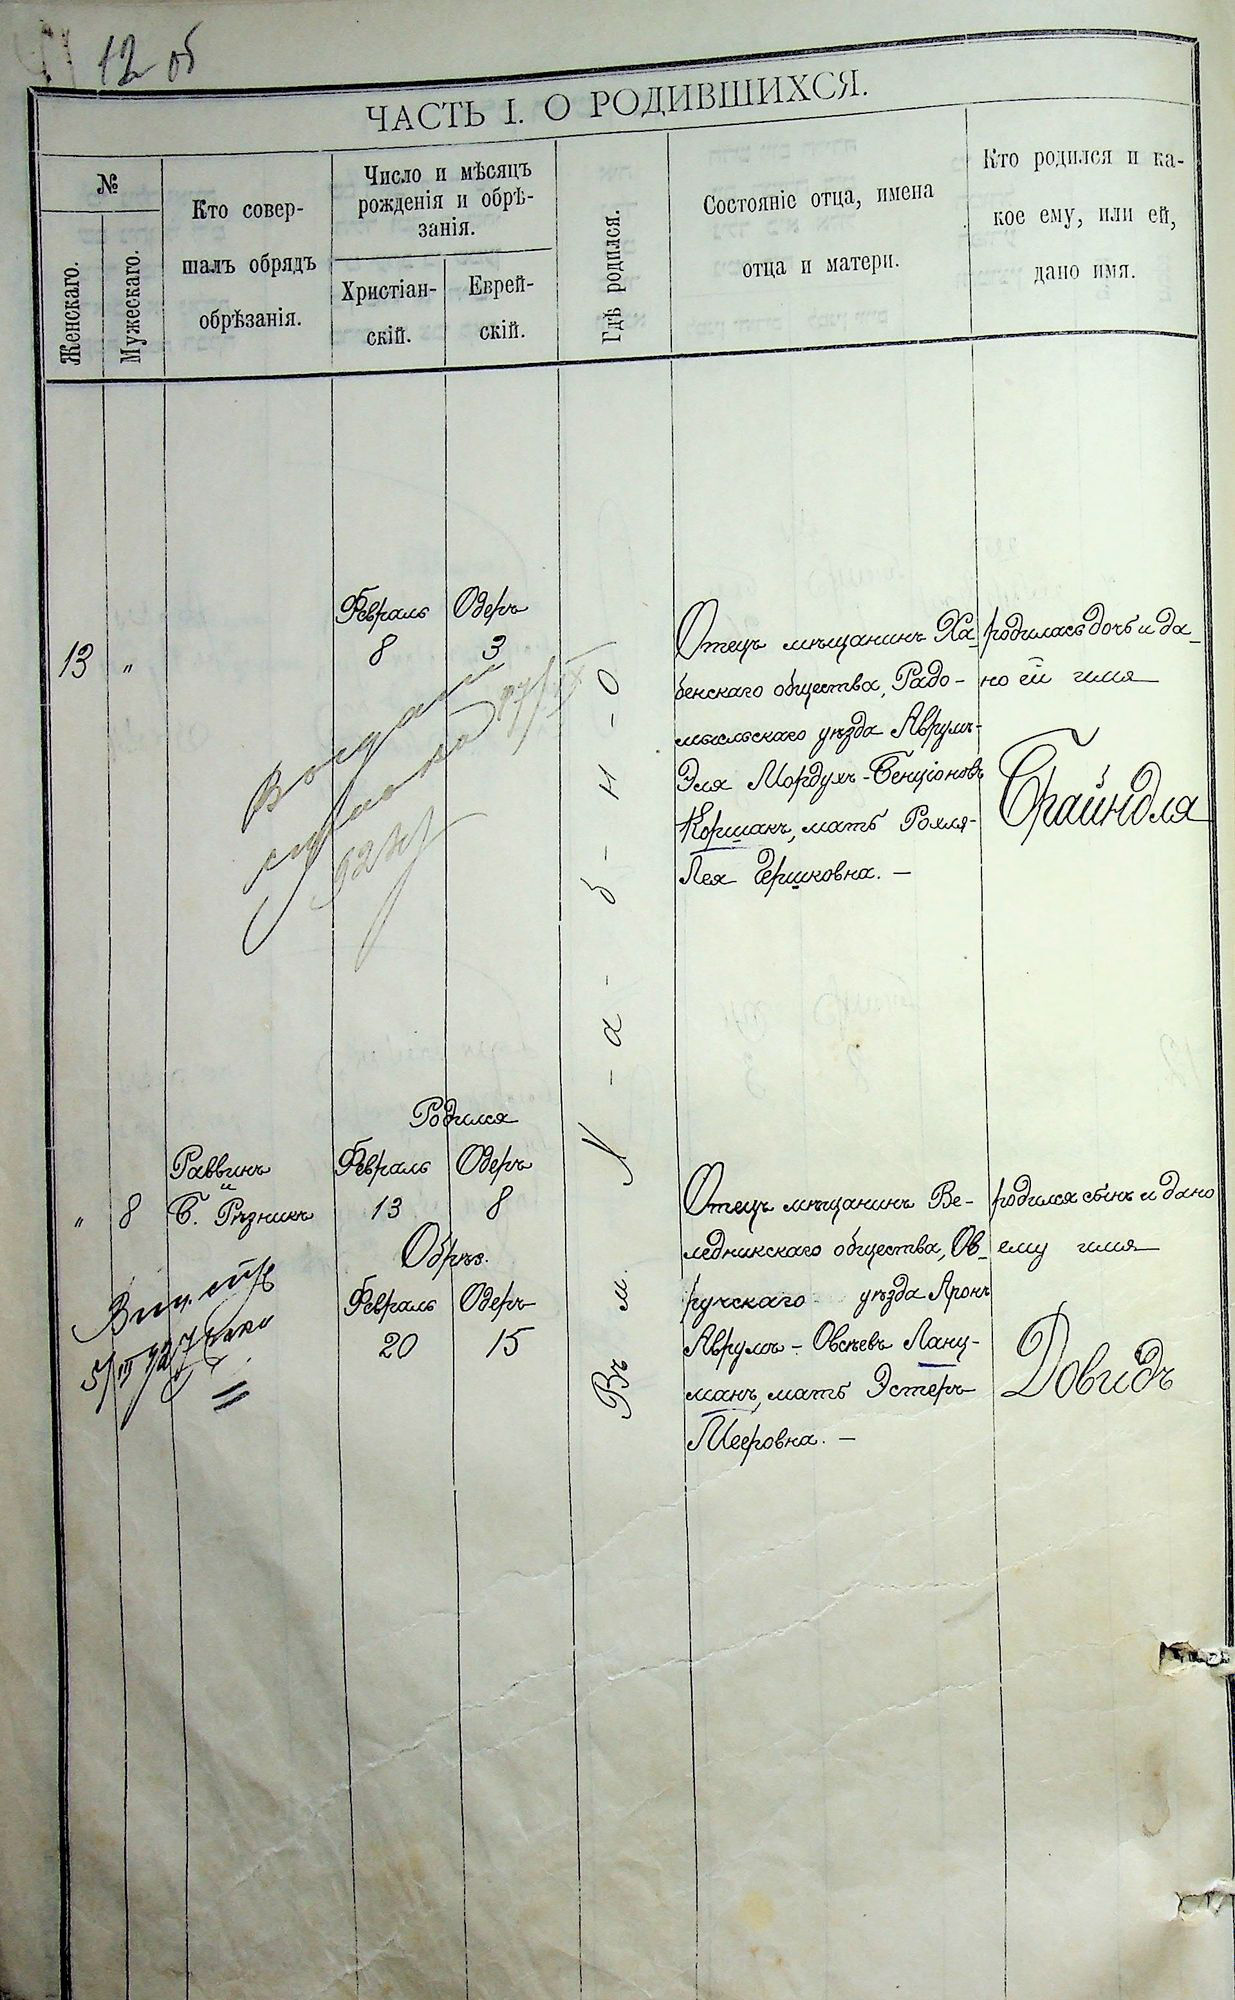 12 об
ЧАСТЬ I. О РОДИВШИХСЯ.
№
Женскаго.
Мужескаго.
Кто совер-
шалъ обрядъ
обрѣзанія.
Число и мѣсяцъ
рожденія и обрѣ-
занія.
Христіан-
скій.
Еврей-
скій.
Гдѣ родился.
Состояніе отца, имена
отца и матери.
Кто родился и ка-
кое ему, или ей,
дано имя.
13 "
Февраль Одеръ
8 3
Отецъ мѣщанинъ Ха-
бенскаго общества, Радо-
мысльскаго уѣзда Аврумъ-
Эля Мордухъ-Бенціоновъ
Коршакъ, мать Рохля-
Лея Гершковна. —
родилась дочь и да-
но ей имя
Брайндля
Выдана
Въ м. Х-а-б-н-о
" 8
Раввинъ
и
Б. Рѣзникъ
Родился
Февраль Одеръ
13 8
Обрѣз.
Февраль Одеръ
20 15
Отецъ мѣщанинъ Ве-
ледникскаго общества, Ов-
ручскаго уѣзда Аронъ
Аврумъ-Овсѣевъ Ланц-
манъ, мать Эстеръ
Мееровна. —
родился сынъ и дано
ему имя
Довидъ
5/III 927